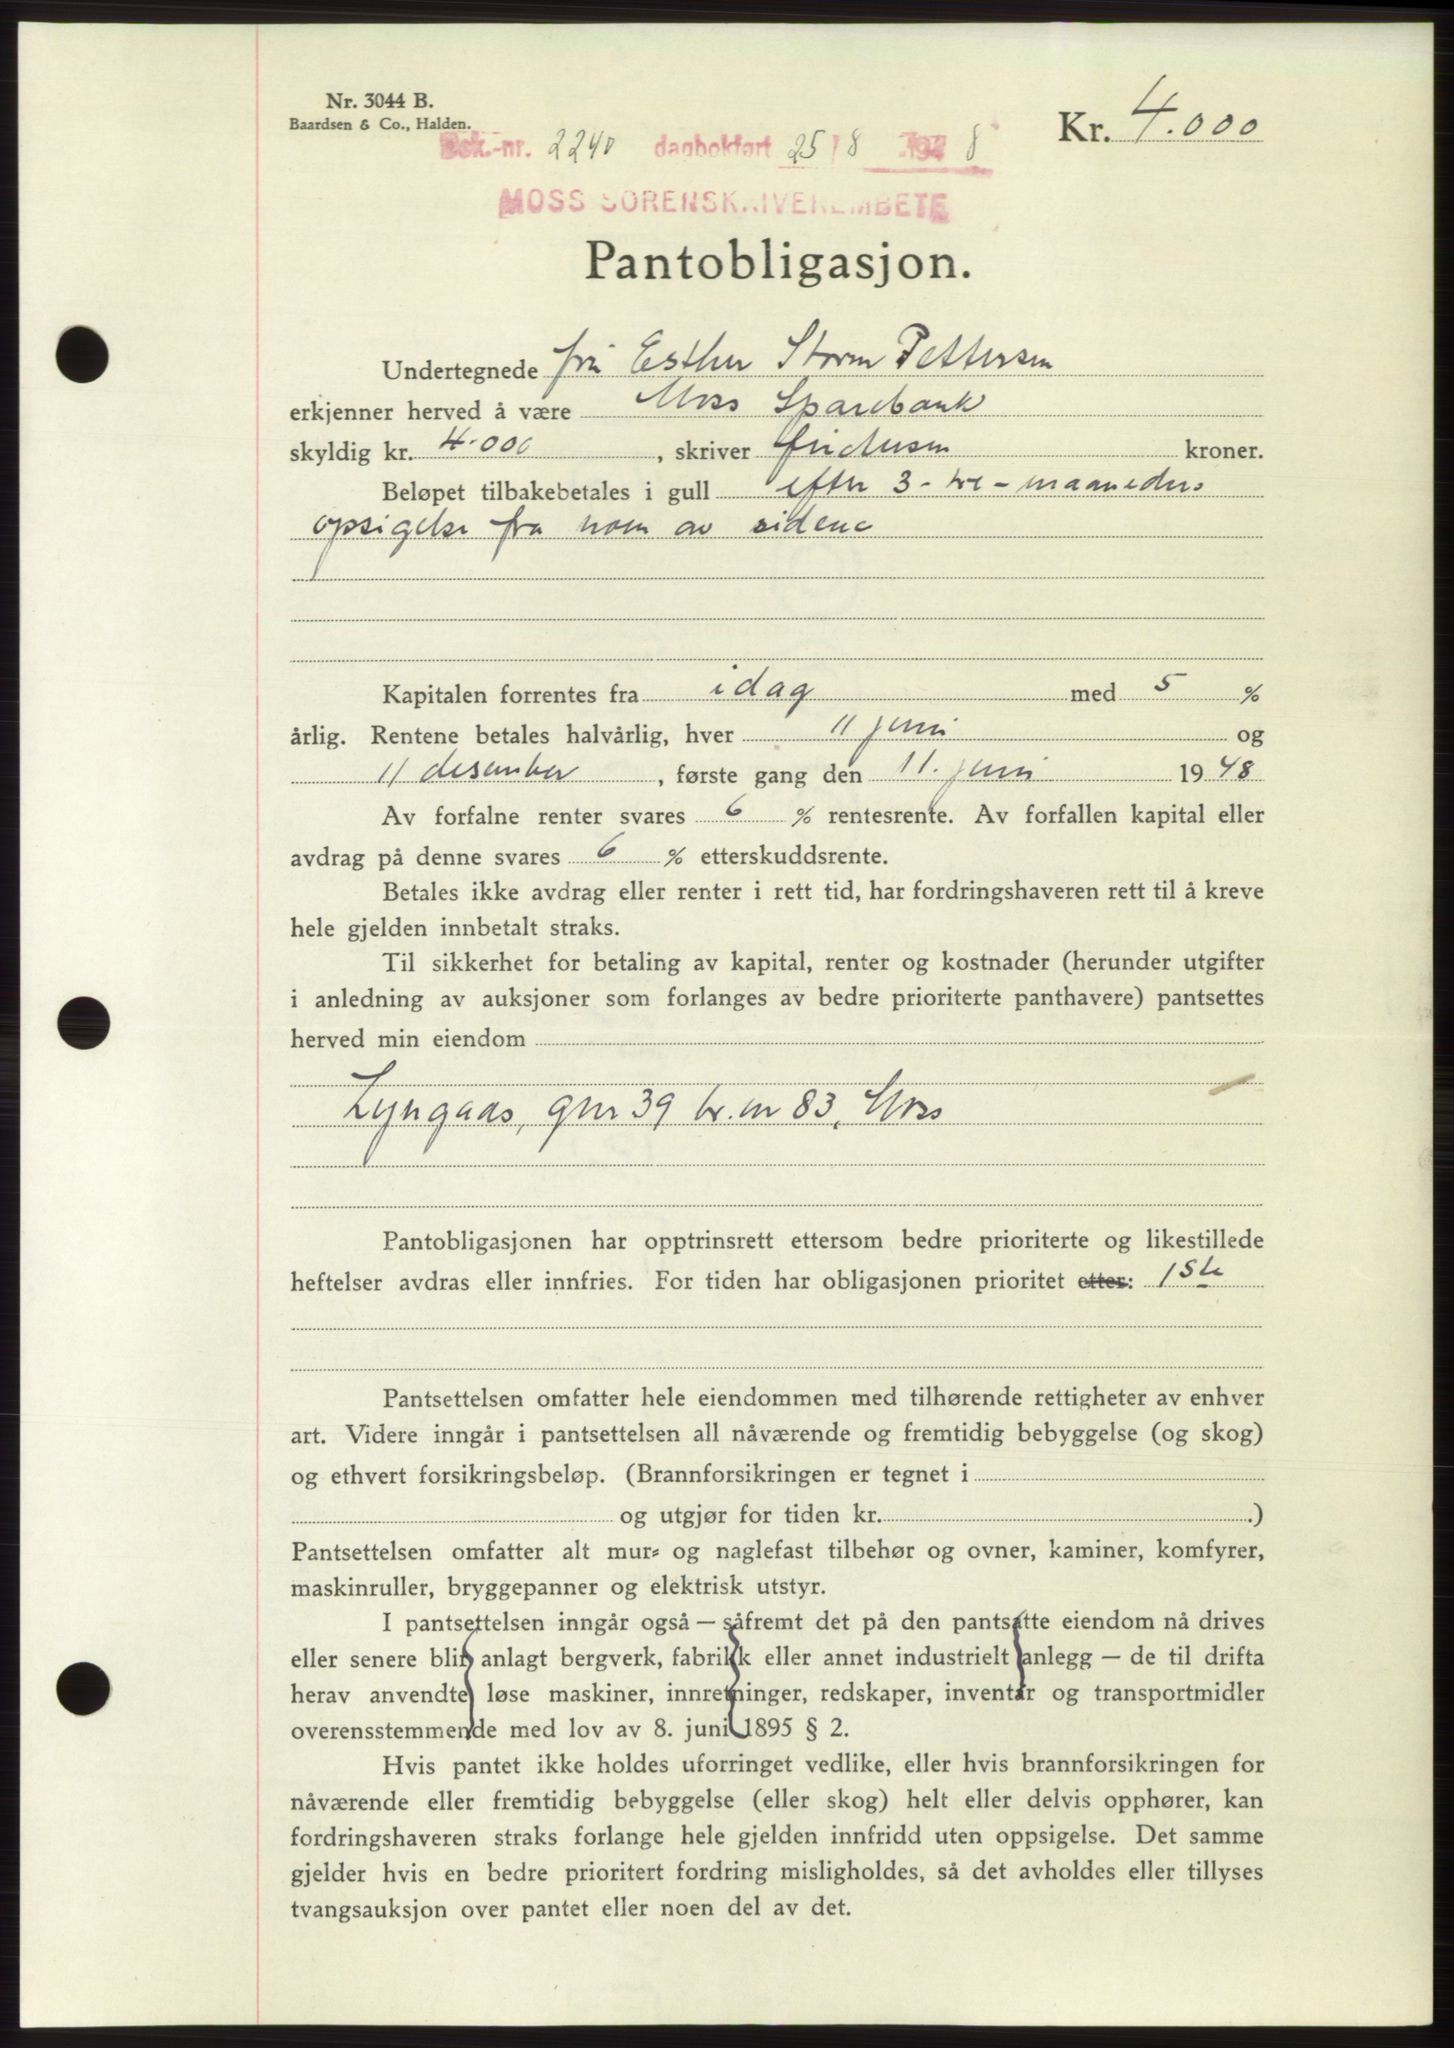 Nr. 3044 B.
Baardsen & Co., Halden.
Kr. 4.000
Dok.-nr. 2240 dagbokført 25/8 1948
MOSS SORENSKRIVEREMBETE
Pantobligasjon.
Undertegnede fru Esther Storm Pettersen
erkjenner herved å være Moss Sparebank
skyldig kr. 4.000, skriver firetusen kroner.
Beløpet tilbakebetales i gull efter 3 - tre - maaneders
opsigelse fra noen av sidene
Kapitalen forrentes fra idag med 5 %
årlig. Rentene betales halvårlig, hver 11 juni og
11 desember, første gang den 11. juni 1948
Av forfalne renter svares 6 % rentesrente. Av forfallen kapital eller
avdrag på denne svares 6 % etterskuddsrente.
Betales ikke avdrag eller renter i rett tid, har fordringshaveren rett til å kreve
hele gjelden innbetalt straks.
Til sikkerhet for betaling av kapital, renter og kostnader (herunder utgifter
i anledning av auksjoner som forlanges av bedre prioriterte panthavere) pantsettes
herved min eiendom
Lyngaas, gnr 39 br. nr 83, Moss
Pantobligasjonen har opptrinsrett ettersom bedre prioriterte og likestillede
heftelser avdras eller innfries. For tiden har obligasjonen prioritet etter: 1ste
Pantsettelsen omfatter hele eiendommen med tilhørende rettigheter av enhver
art. Videre inngår i pantsettelsen all nåværende og fremtidig bebyggelse (og skog)
og ethvert forsikringsbeløp. (Brannforsikringen er tegnet i
og utgjør for tiden kr. .)
Pantsettelsen omfatter alt mur- og naglefast tilbehør og ovner, kaminer, komfyrer,
maskinruller, bryggepanner og elektrisk utstyr.
I pantsettelsen inngår også — såfremt det på den pantsatte eiendom nå drives
eller senere blir anlagt bergverk, fabrikk eller annet industrielt anlegg — de til drifta
herav anvendte løse maskiner, innretninger, redskaper, inventar og transportmidler
overensstemmende med lov av 8. juni 1895 § 2.
Hvis pantet ikke holdes uforringet vedlike, eller hvis brannforsikringen for
nåværende eller fremtidig bebyggelse (eller skog) helt eller delvis opphører, kan
fordringshaveren straks forlange hele gjelden innfridd uten oppsigelse. Det samme
gjelder hvis en bedre prioritert fordring misligholdes, så det avholdes eller tillyses
tvangsauksjon over pantet eller noen del av det.